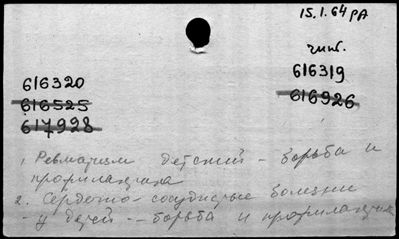 15.1.64 РА
чит.
616320
616319
616525
616926
617928
1. Ревматизм детский - борьба и
профилактика
2. Сердечно-сосудистые болезни
- у детей -- борьба и профилактика